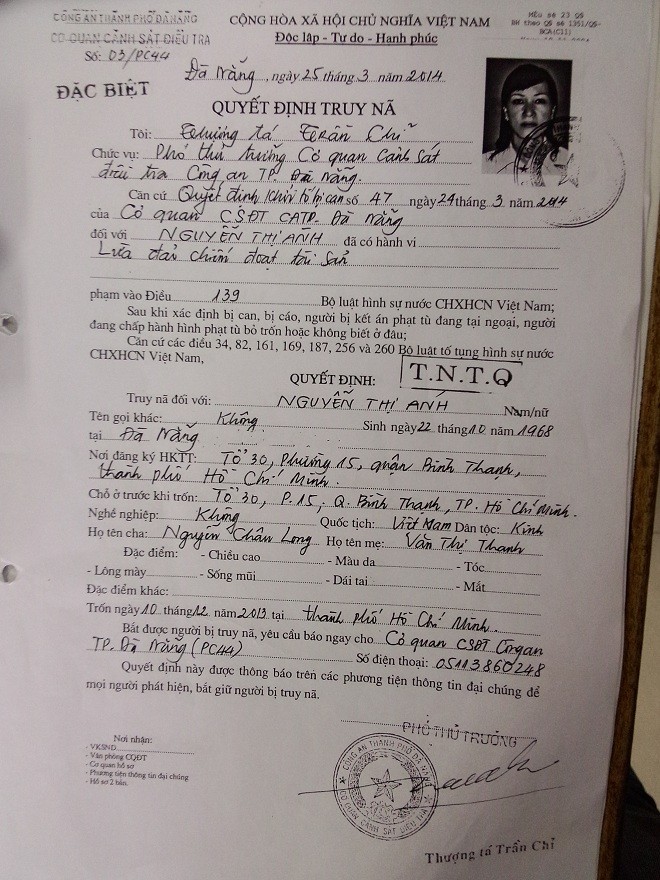 CÔNG AN THÀNH PHỐ ĐÀ NẴNG
CƠ QUAN CẢNH SÁT ĐIỀU TRA
Số: 03/PC44
CỘNG HÒA XÃ HỘI CHỦ NGHĨA VIỆT NAM
Độc lập - Tự do - Hạnh phúc
Mẫu số 23 QS
BH theo QĐ số 1351/QĐ-
BCA(C11)
Đà Nẵng, ngày 25 tháng 3 năm 2014
ĐẶC BIỆT
QUYẾT ĐỊNH TRUY NÃ
Tôi: Thượng tá Trần Chí
Chức vụ: Phó thủ trưởng Cơ quan Cảnh sát
điều tra Công an TP. Đà Nẵng.
Căn cứ Quyết định khởi tố bị can số 47 ngày 24 tháng 3 năm 2014
của Cơ quan CSĐT CATP. Đà Nẵng
đối với NGUYỄN THỊ ÁNH đã có hành vi
Lừa đảo chiếm đoạt tài sản
phạm vào Điều 139 Bộ luật hình sự nước CHXHCN Việt Nam;
Sau khi xác định bị can, bị cáo, người bị kết án phạt tù đang tại ngoại, người
đang chấp hành hình phạt tù bỏ trốn hoặc không biết ở đâu;
Căn cứ các điều 34, 82, 161, 169, 187, 256 và 260 Bộ luật tố tụng hình sự nước
CHXHCN Việt Nam,
QUYẾT ĐỊNH:
T.N.T.Q
Truy nã đối với: NGUYỄN THỊ ÁNH Nam/nữ
Tên gọi khác: Không Sinh ngày 22 tháng 10 năm 1968
tại Đà Nẵng
Nơi đăng ký HKTT: Tổ 30, Phường 15, quận Bình Thạnh,
thành phố Hồ Chí Minh.
Chỗ ở trước khi trốn: Tổ 30, P.15, Q. Bình Thạnh, TP. Hồ Chí Minh.
Nghề nghiệp: Không Quốc tịch: Việt Nam Dân tộc: Kinh
Họ tên cha: Nguyễn Chân Long Họ tên mẹ: Văn Thị Thanh
Đặc điểm: - Chiều cao - Màu da - Tóc
- Lông mày - Sống mũi - Dái tai - Mắt
Đặc điểm khác:
Trốn ngày 10 tháng 12 năm 2013 tại thành phố Hồ Chí Minh.
Bắt được người bị truy nã, yêu cầu báo ngay cho Cơ quan CSĐT Công an
TP. Đà Nẵng (PC44) Số điện thoại: 05113860248
Quyết định này được thông báo trên các phương tiện thông tin đại chúng để
mọi người phát hiện, bắt giữ người bị truy nã.
PHÓ THỦ TRƯỞNG
Nơi nhận:
- VKSND
- Văn phòng CQĐT
- Cơ quan hồ sơ
- Phương tiện thông tin đại chúng
- Hồ sơ 2 bản.
CÔNG AN THÀNH PHỐ ĐÀ NẴNG
CƠ QUAN CẢNH SÁT ĐIỀU TRA
Thượng tá Trần Chí